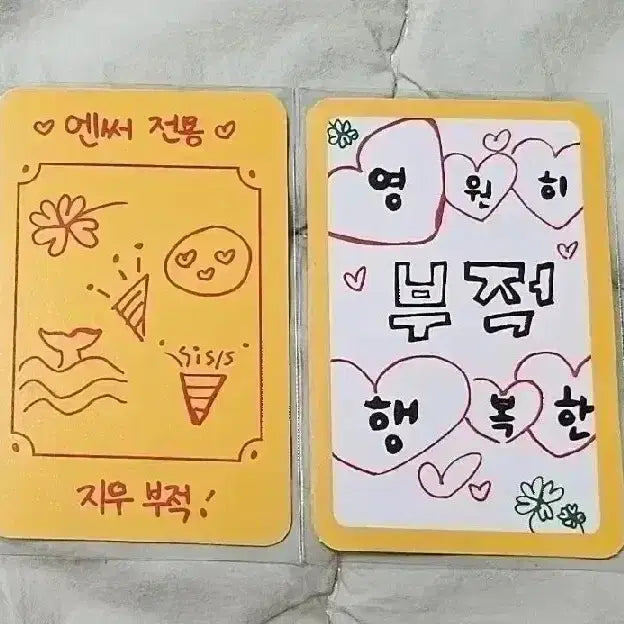 ♡ 엔써 전용 ♡
지우 부적!
영 원 히
부적
행 복 한